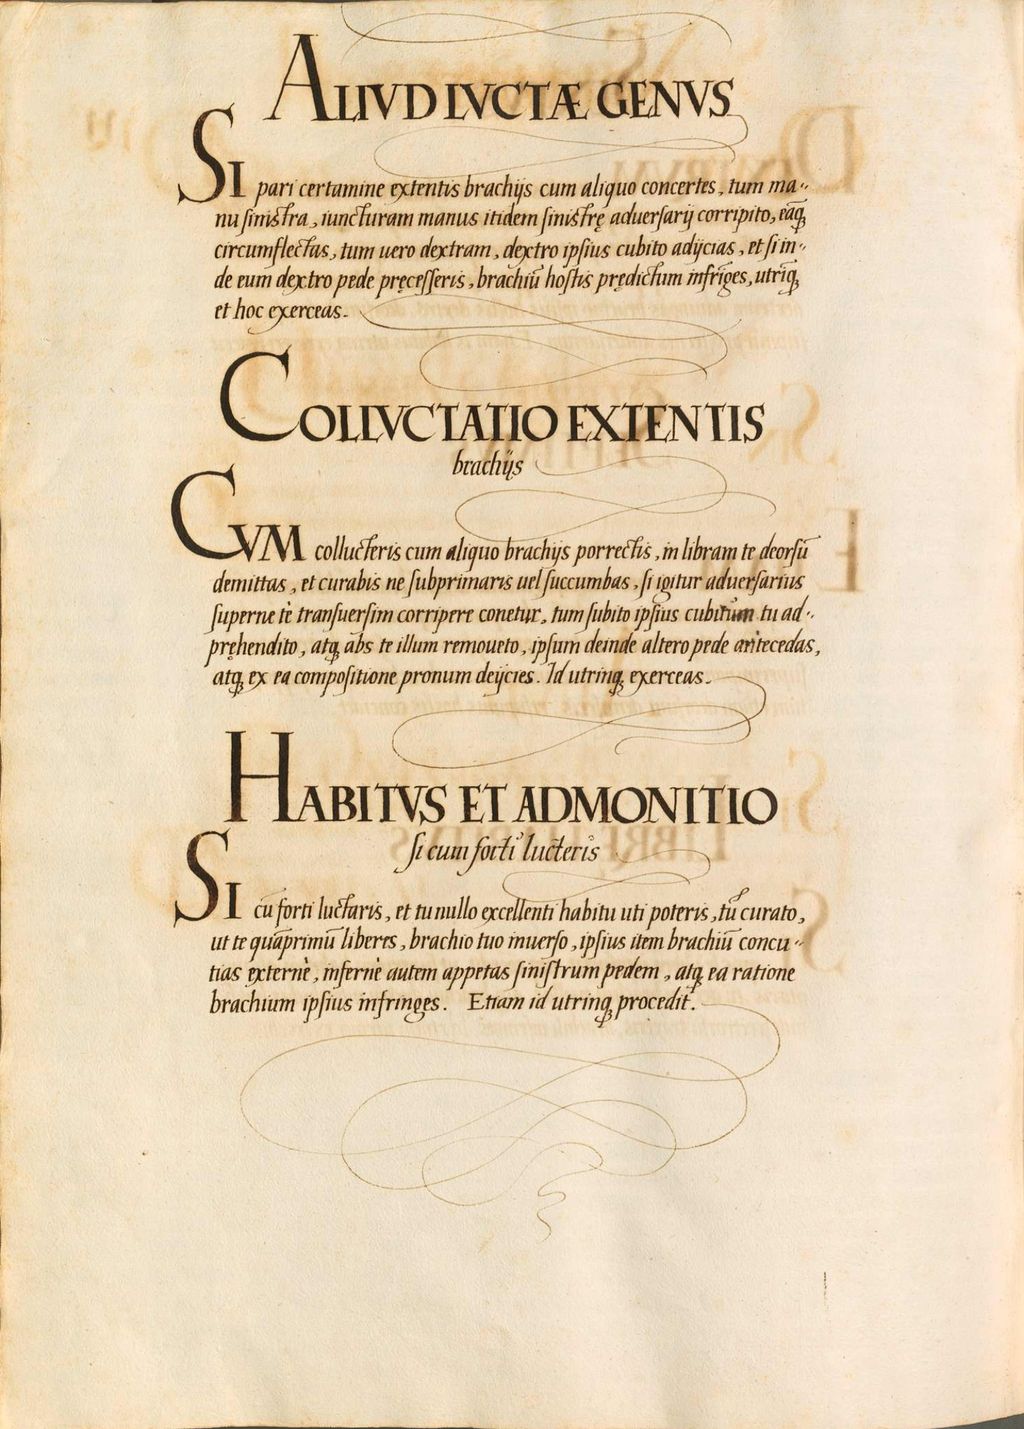 ALIVD LVCTÆ GENVS
SI pari certamine extentis brachijs cum aliquo concertes, tum ma-
nu sinistra, iuncturam manus itidem sinistrę aduersarij corripito, eaq̃
circumflectas, tum uero dextram, dextro ipsius cubito adijcias, et si in-
de eum dextro pede pręcesseris, brachiũ hostis prędictum infriges, utriq̃
et hoc exerceas.
COLLVCTATIO EXTENTIS
brachijs
CVM collucteris cum aliquo brachijs porrectis, in libram te deorsũ
demittas, et curabis ne subprimaris uel succumbas, si igitur aduersarius
superne tè transuersim corripere conetur, tum subito ipsius cubitum tu ad-
pręhendito, atq̃ abs te illum remoueto, ipsum deinde altero pede antecedas,
atq̃ ex ea compositione pronum deijcies. Id utrinq̃ exerceas.
HABITVS ET ADMONITIO
si cum forti lucteris
SI cũ forti luctaris, et tu nullo excellenti habitu uti poteris, tũ curato,
ut te quãprimũ liberes, brachio tuo inuerso, ipsius item brachiũ concu-
tias externè, infernè autem appetas sinistrum pedem, atq̃ ea ratione
brachium ipsius infringes. Etiam id utrinq̃ procedit.